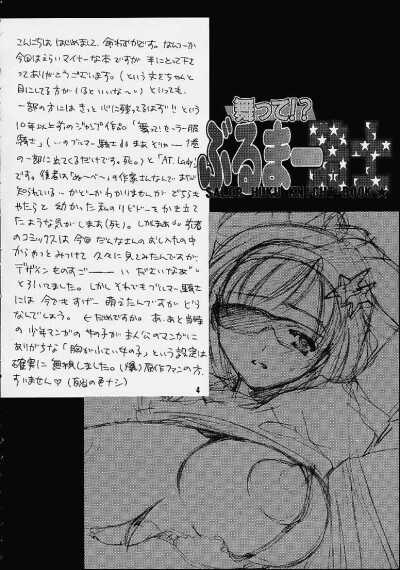 こんにちは はじめまして、命わずかです。なんつーか
今回はえらいマイナーな本ですが 手にとって下さ
ってありがとうございます。(という文をちゃんと
目にしてる方が いるといいな〜い)といっても、
一部の方には きっと 心に残ってるはず!! という
10年以上前のジャンプ作品。「舞って!セーラー服
騎士」(いやーブルマー騎士 まあ どりゃー 1巻
の一部に出てくるだけです。死。)と「AT. Lady!」
です。作者は「ぬ〜べ〜」の作家さんなんで まだ
知られている…かどーか わかりませんが どちらも
やたらと 幼かった 私のリビドーを かき立て
たような気が しまあ(死)。しかしまあ 前者
のコミックスは 今回 だんなさんの おし入れの中
からやっと みつけて 久々に 見てみたんですが、
デザイン ものすごーーーい だだいなあ"ぃ
と引いてました。しかし それでも ブルマー騎士
には 今でも すげー 萌えたんですが どう
なんでしょう。←だめですか。あ、あと 当時
の 少年マンガの 女の子が まん公のマンガに
ありがちな「胸が小さい女の子」という設定は
確実に 無視しました。(爆) 原作ファンの方、
すいません♡
4
舞って!?
ぶるまー騎士
SAILOR HUKU KNIGHT BOOK